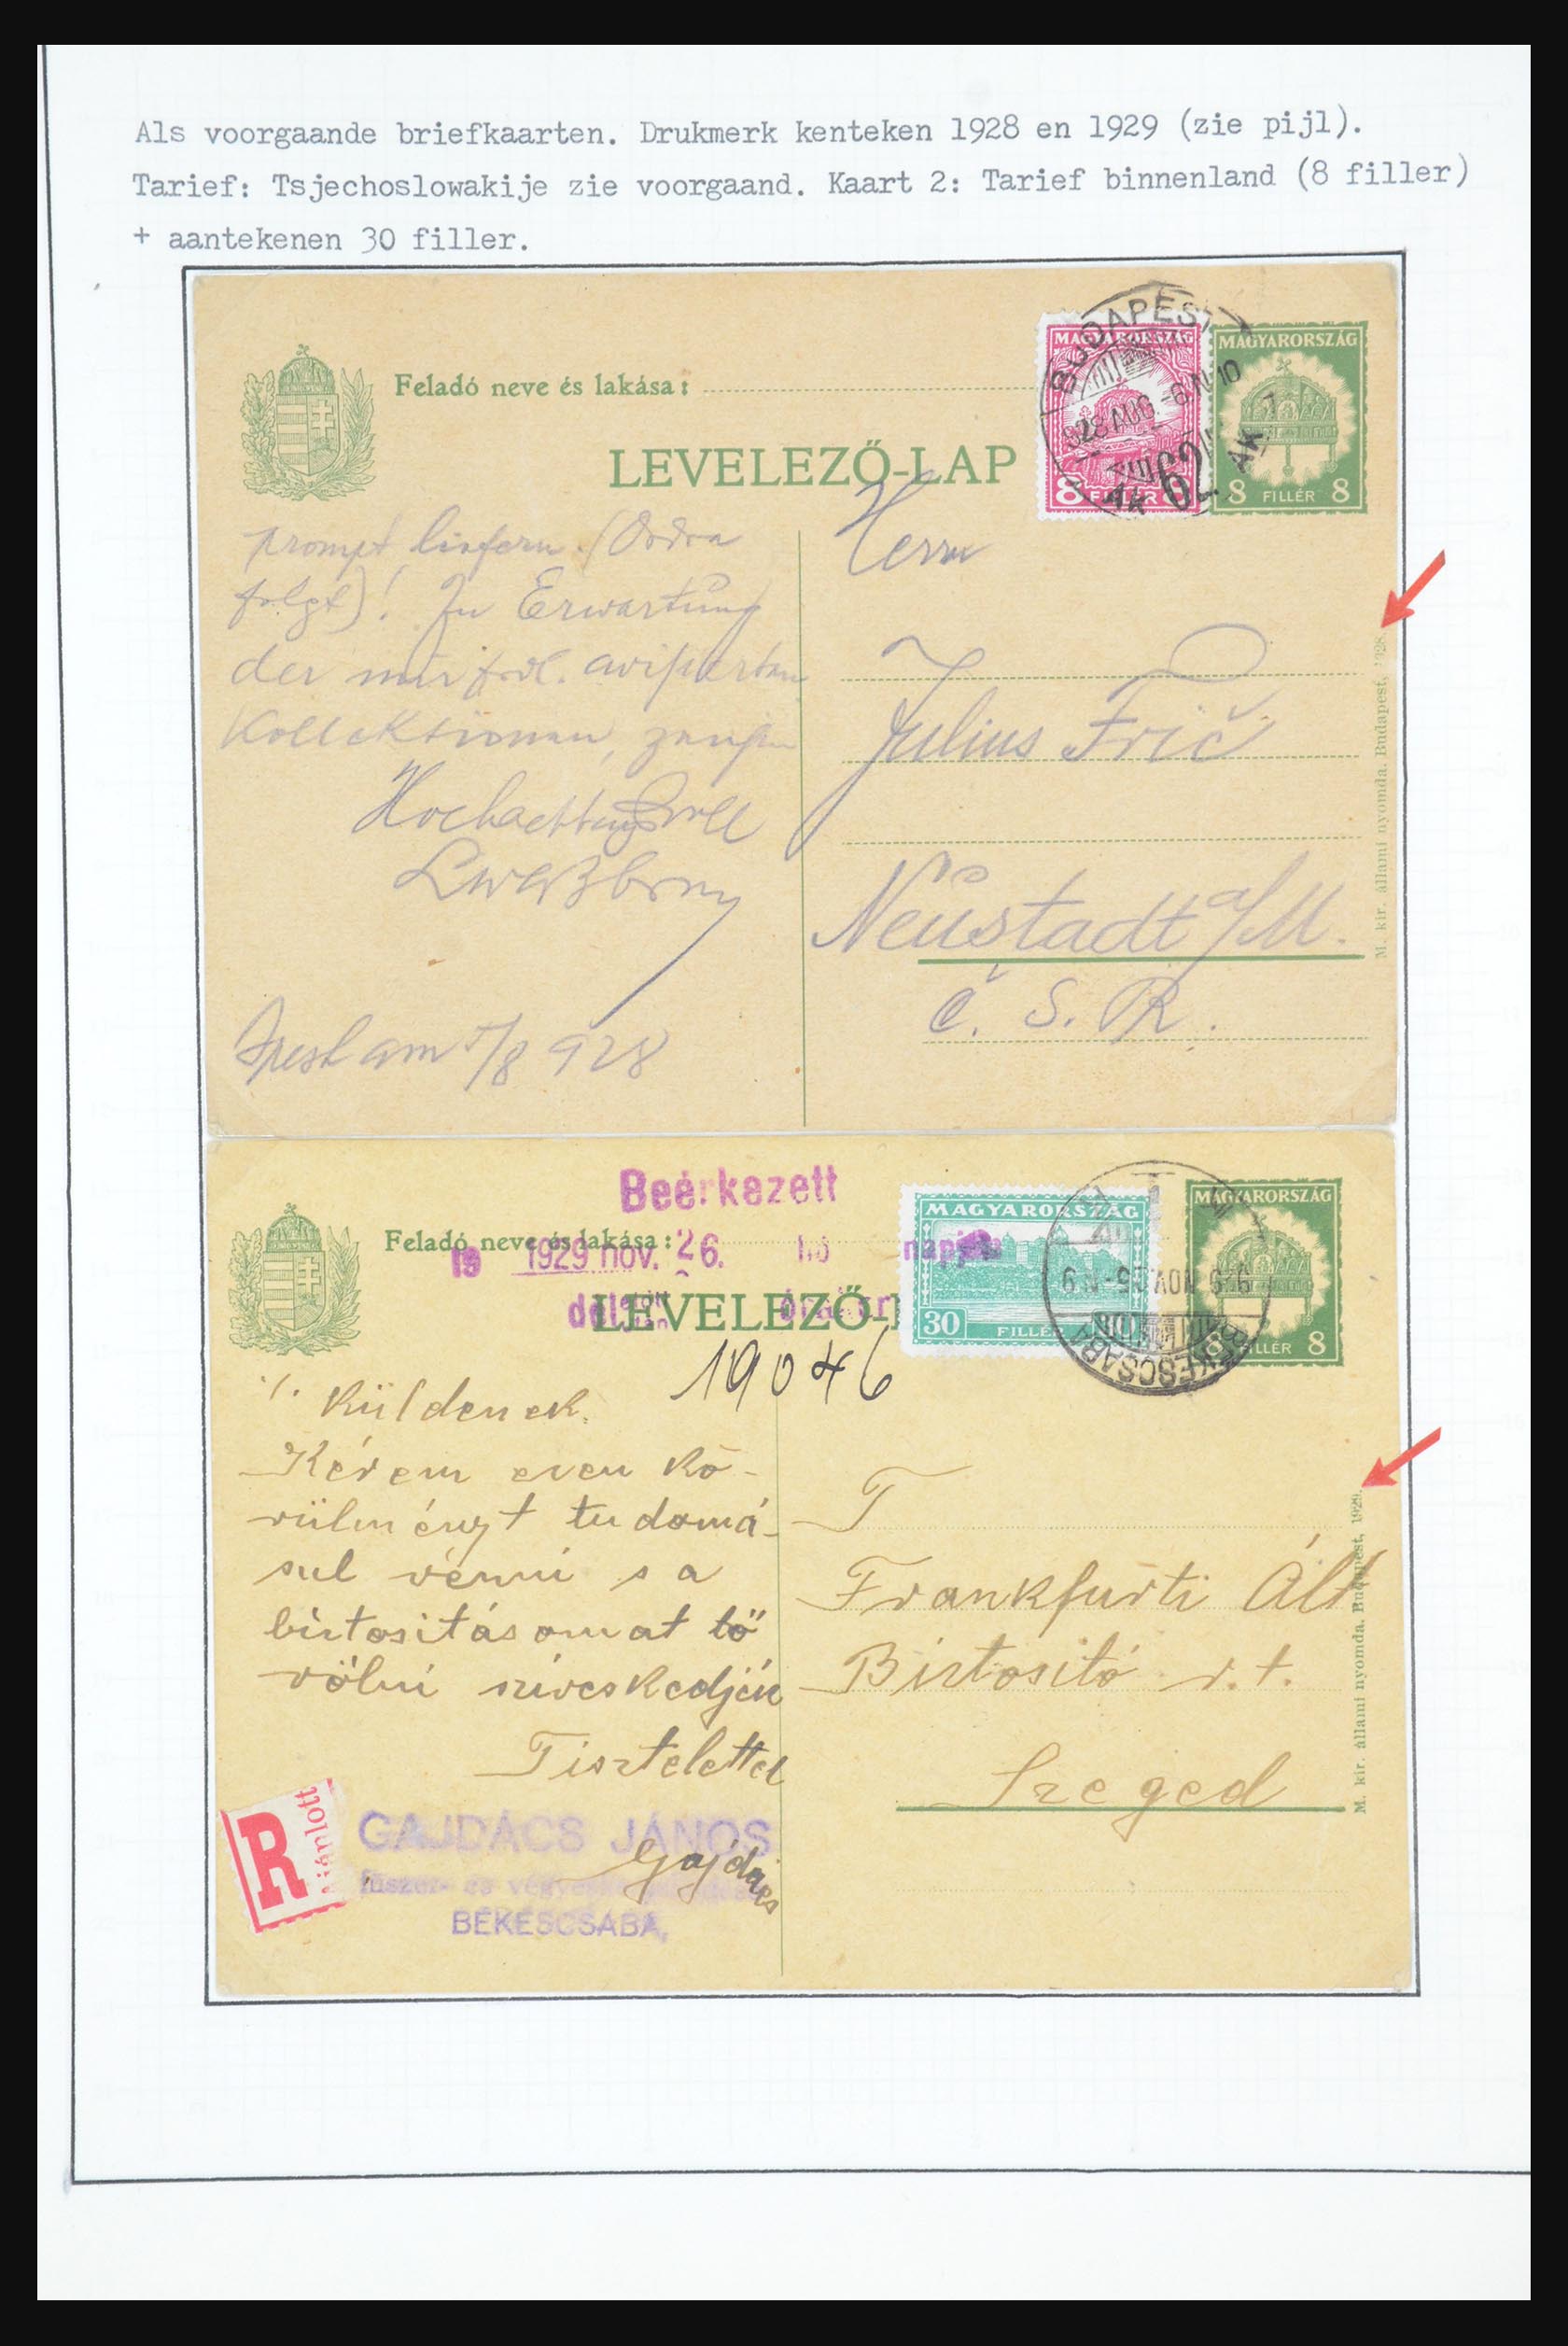 Als voorgaande briefkaarten. Drukmerk kenteken 1928 en 1929 (zie pijl).
Tarief: Tsjechoslowakije zie voorgaand. Kaart 2: Tarief binnenland (8 filler)
+ aantekenen 30 filler.
Feladó neve és lakása:
LEVELEZŐ-LAP
MAGYARORSZÁG
8 FILLÉR 8
MAGYARORSZÁG
8 FILLÉR 8
BUDAPEST
928 AUG. -6. N 10
62
prompt liefern. (Ordre
folgt)! In Erwartung
der mir frdl. avisierten
Kollektionen, zeichne
Hochachtungsvoll
am 5/8 928
Herrn
Julius Frič
Neustadt a/M.
Č. S. R.
M. kir. állami nyomda. Budapest, 1928.
Beérkezett
Feladó neve és lakása:
19 1929 nov. 26. hó napján
LEVELEZŐ-
19046
MAGYARORSZÁG
30 FILLÉR
MAGYARORSZÁG
8 FILLÉR 8
929 NOV 25 - N 9
BÉKÉSCSABA
·/. küldenek.
Kérem ezen kö-
rülményt tudomá-
sul venni s a
biztositásomat tö
rölni sziveskedjék
Tisztelettel
GAJDÁCS JÁNOS
Gajdács
fűszer- és
BÉKÉSCSABA,
R
Ajánlott
T
Frankfurti Ált
Biztositó r.t.
Szeged
M. kir. állami nyomda. Budapest, 1929.